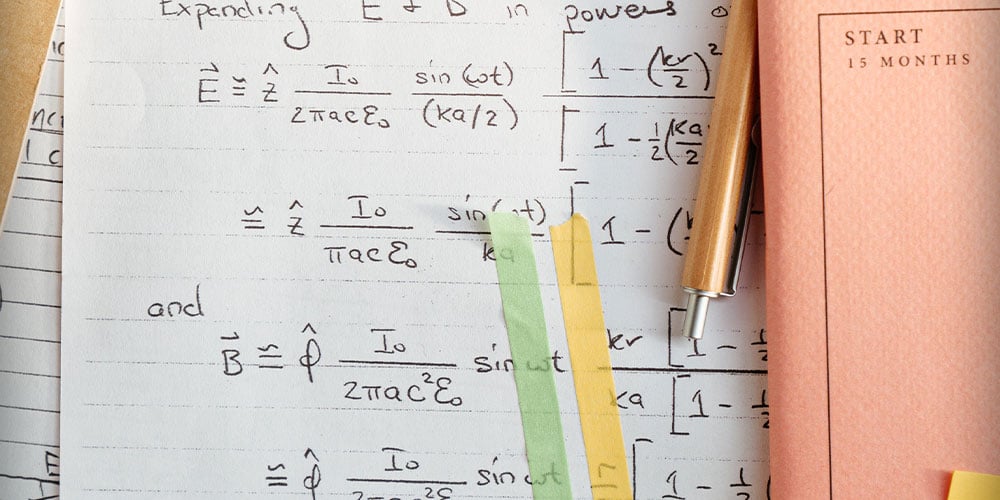 Expanding E & B in powers
E ≅ ẑ I₀ / 2πacε₀ sin(ωt) / (ka/2) [1 - (kr/2)² / [1 - 1/2(ka/2
≅ ẑ I₀ / πacε₀ sin(ωt) / ka [1 - (
and
B ≅ φ̂ I₀ / 2πac²ε₀ sin ωt kr [1 - 1/2 / ka [1 - 1/2
≅ φ̂ I₀ sin ωt [1 - 1
START
15 MONTHS